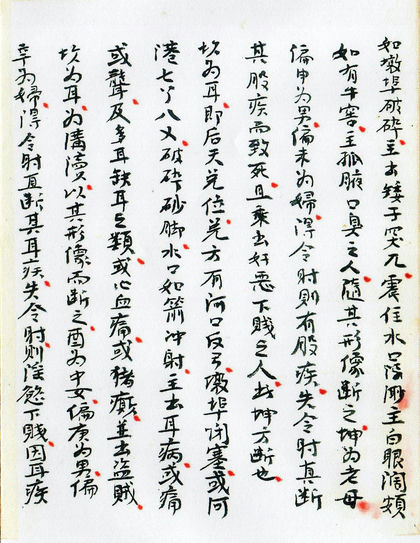 如墩埠破碎主出矮子突兀震住水口陰砂主白眼濶頦
如有牛窖主狐腋口臭之人隨其形像斷之坤為老母
偏申為男偏未為婦得令时則有股疾失令时真断
其股疾而致死且乘出奸惡下賤之人此坤方斷也
坎為耳即后天兑位兑方有河口反弓墩埠闭塞或河
港七丫八义破碎砂脚水口如箭冲射主出耳病或痛
或聾及多耳缺耳之類或心血痛或猪癫並出盗賊
坎為耳為溝瀆以其形像而断之酉為中女偏庚為男偏
辛為婦得令时直斷其耳疾失令时则淫慾下賤因耳疾